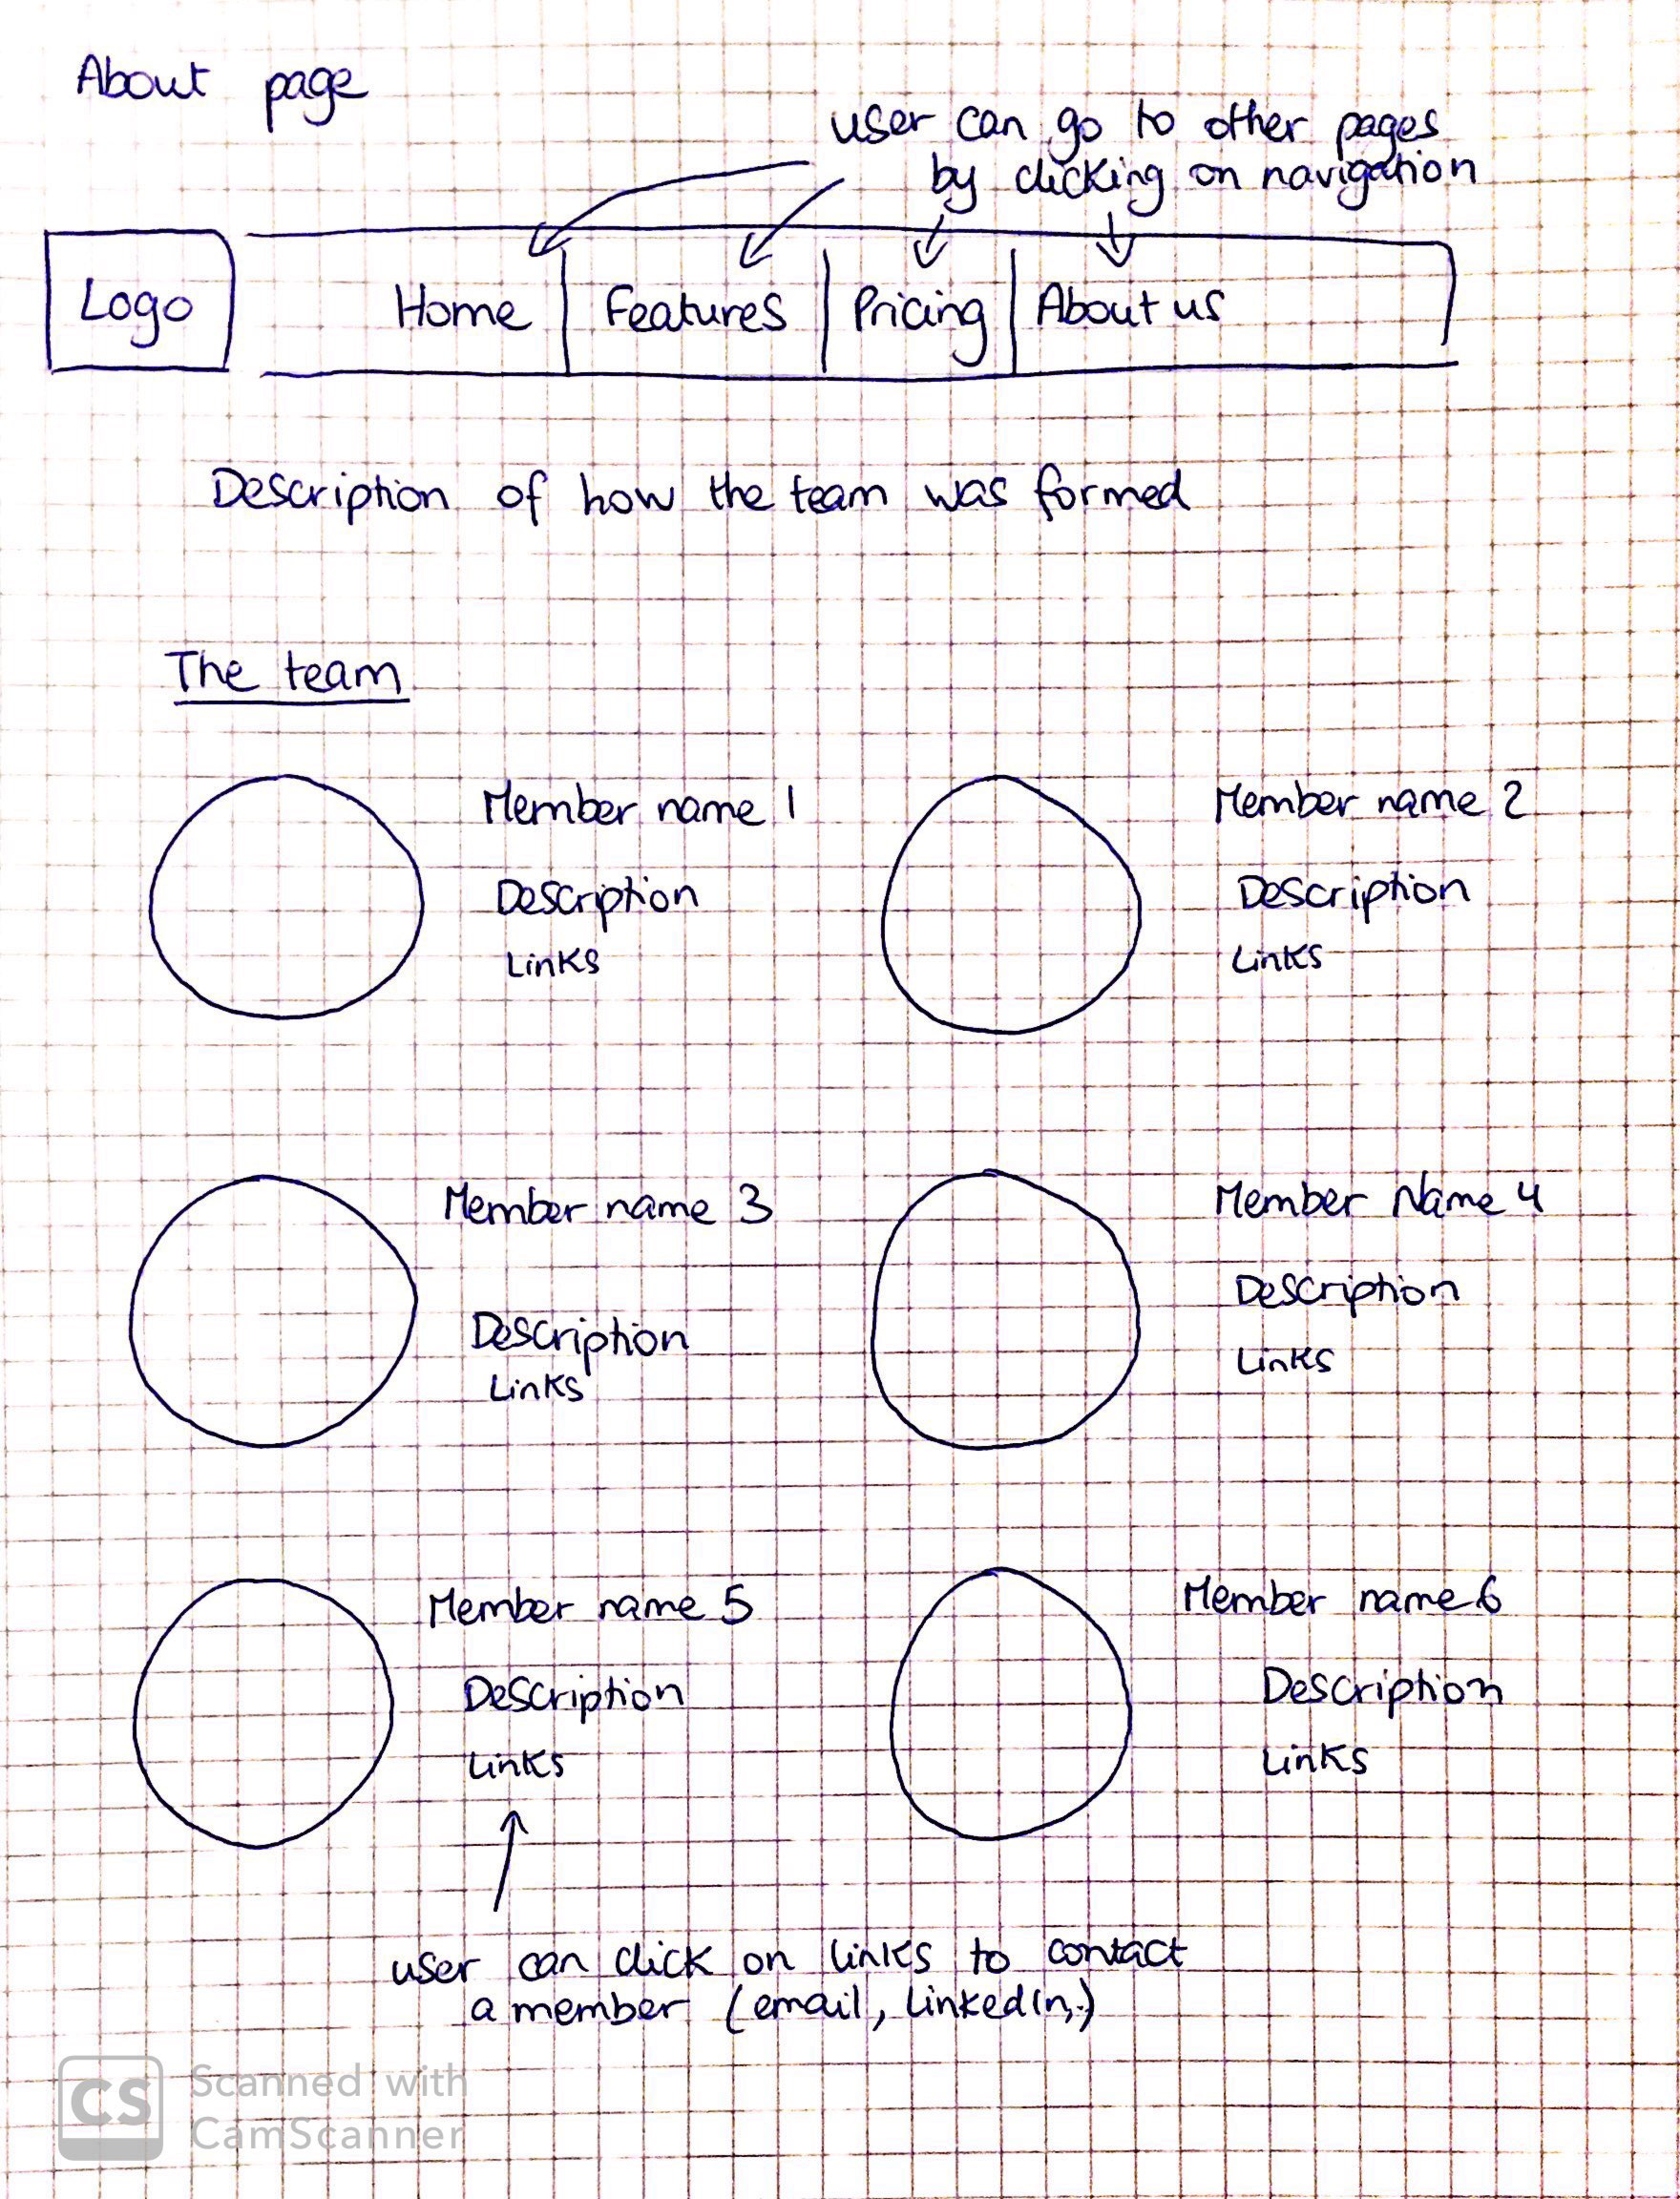 About page
user can go to other pages
by clicking on navigation
Logo
Home
Features
Pricing
About us
Description of how the team was formed
The team
Member name 1
Description
Links
Member name 2
Description
Links
Member name 3
Description
Links
Member Name 4
Description
Links
Member name 5
Description
Links
Member name 6
Description
Links
user can click on links to contact
a member (email, LinkedIn,.)
CS
Scanned with
CamScanner